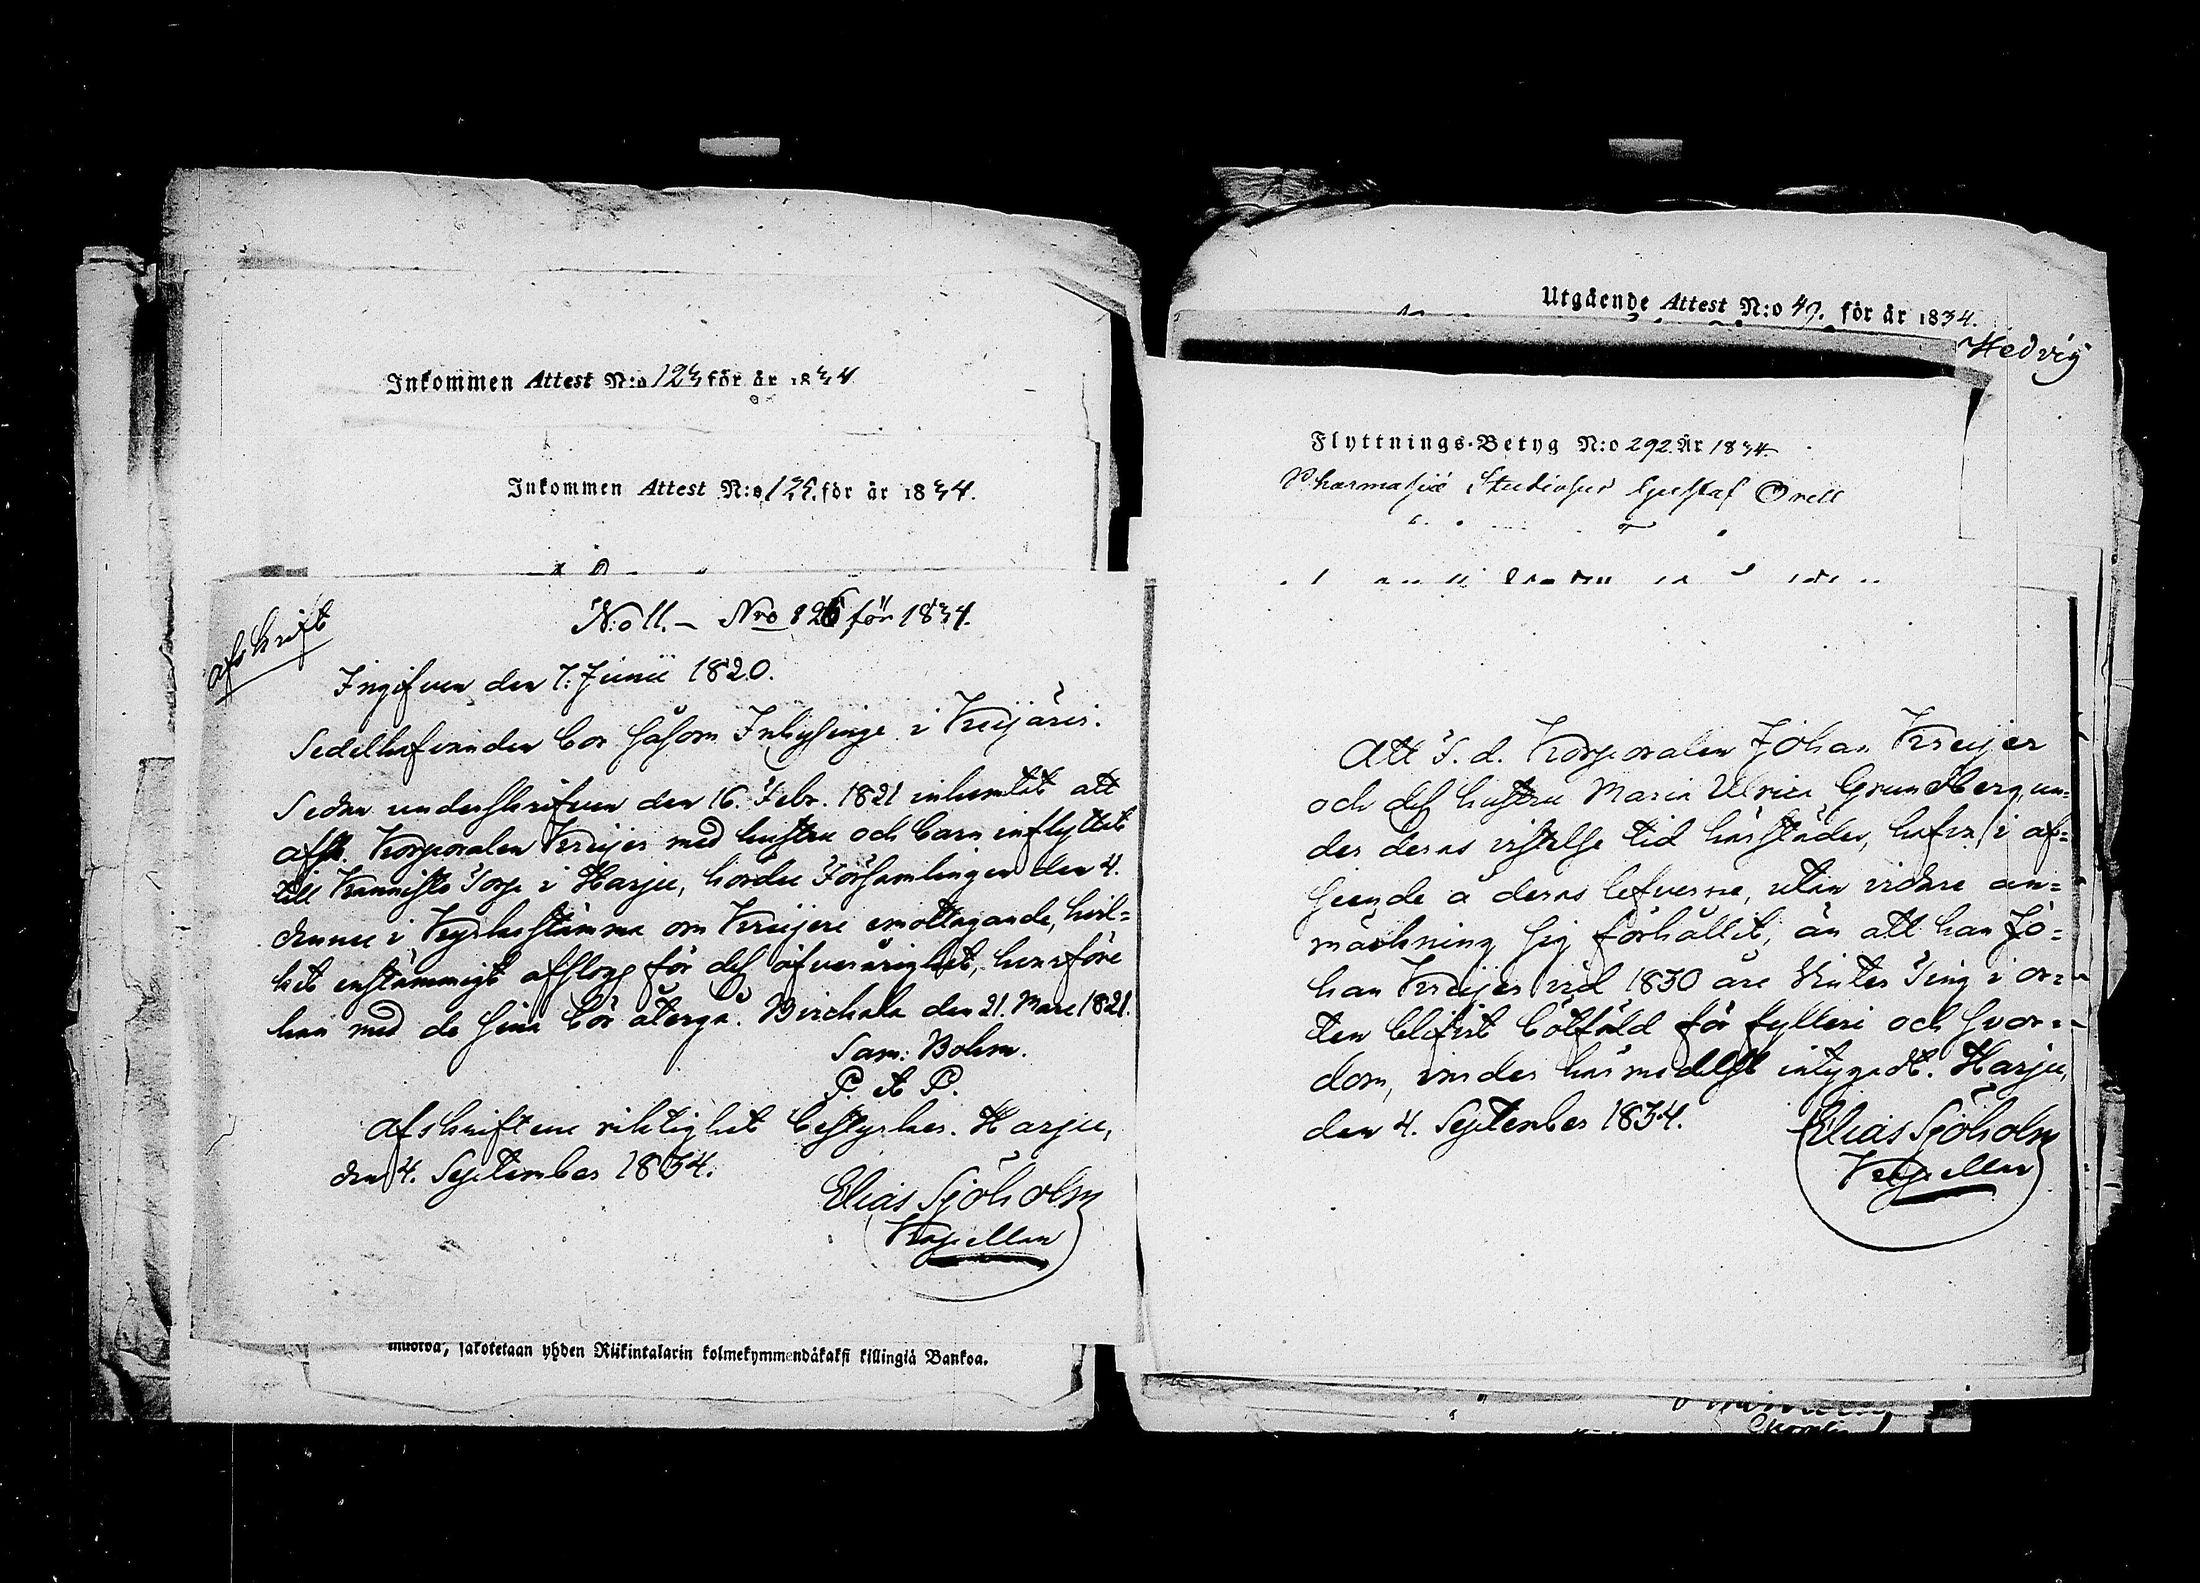 Inkommen Attest N:o 123 för år 1834
Inkommen Attest N:o 125. för år 1834.
afskrift
N:o 11. – Nro 126 för 1834.
Ingifven den 7. Junii 1820.
Sedelhafvanden bor såsom Inhysinge i Keijäris.
Sedan underskrifven den 16. Febr. 1821 inhemtat att
afsk. Korporalen Kreijer med hustru och barn inflyttat
till Kannisto Torp i Harju, hördes Församlingen den 4.
dennes i Kyrkostämma om Kreijers emottagande, hvil=
ket enstämmigt afslogs för dess öfverårighet, hvarföre
han med de sina bör återgå. Birchala den 21. Mars 1821.
Sam: Bohm.
P. et P.
Afskriftens riktighet bestyrker. Harju,
den 4. September 1834.
Elias Sjöholm
Kapellan
muotoa, sakotetaan yhden Riikintalarin kolmekymmendäkaksi killingiä Bankoa.
Utgående Attest N:o 49. för år 1834.
Hedvig
Flyttnings-Betyg N:o 292. År 1834.
Pharmasiæ Studiosus Gustaf Orell
Att T. d. Korporalen Johan Kreijer
och dess hustru Maria Ulrica Grundberg, un=
der deras vistelse tid härstädes, hafva i af=
seende å deras lefverne, utan vidare an=
märkning sig förhållit, än att han Jo=
han Kreijer vid 1830 års Vinter Ting i or=
ten blifvit bötfäld för fylleri och svor=
dom, varder härmedelst intygadt. Harju,
den 4. September 1834.
Elias Sjöholm
Kapellan